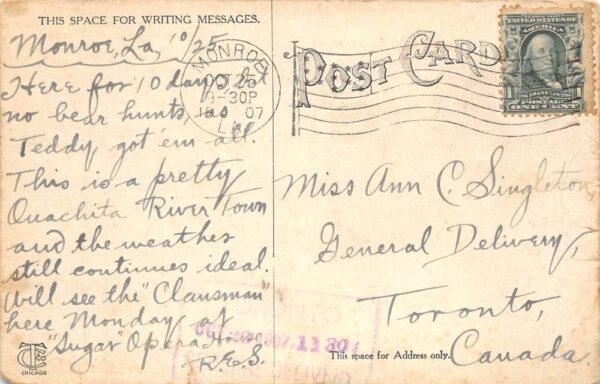 THIS SPACE FOR WRITING MESSAGES.
Monroe, La, 10/25
Here for 10 days but
no bear hunts,
Teddy got 'em all.
This is a pretty
Ouachita River Town
and the weather
still continues ideal.
Will see the "Clansman"
here Monday at
"Sugar" Opera House
R.E.S.
CHICAGO
MONROE
OCT 25
9-30P
1907
LA.
POST CARD
UNITED STATES OF AMERICA
FRANKLIN
POSTAGE
ONE CENT
Miss Ann C. Singleton,
General Delivery,
Toronto,
Canada.
This space for Address only.
11 30
DELIVERY